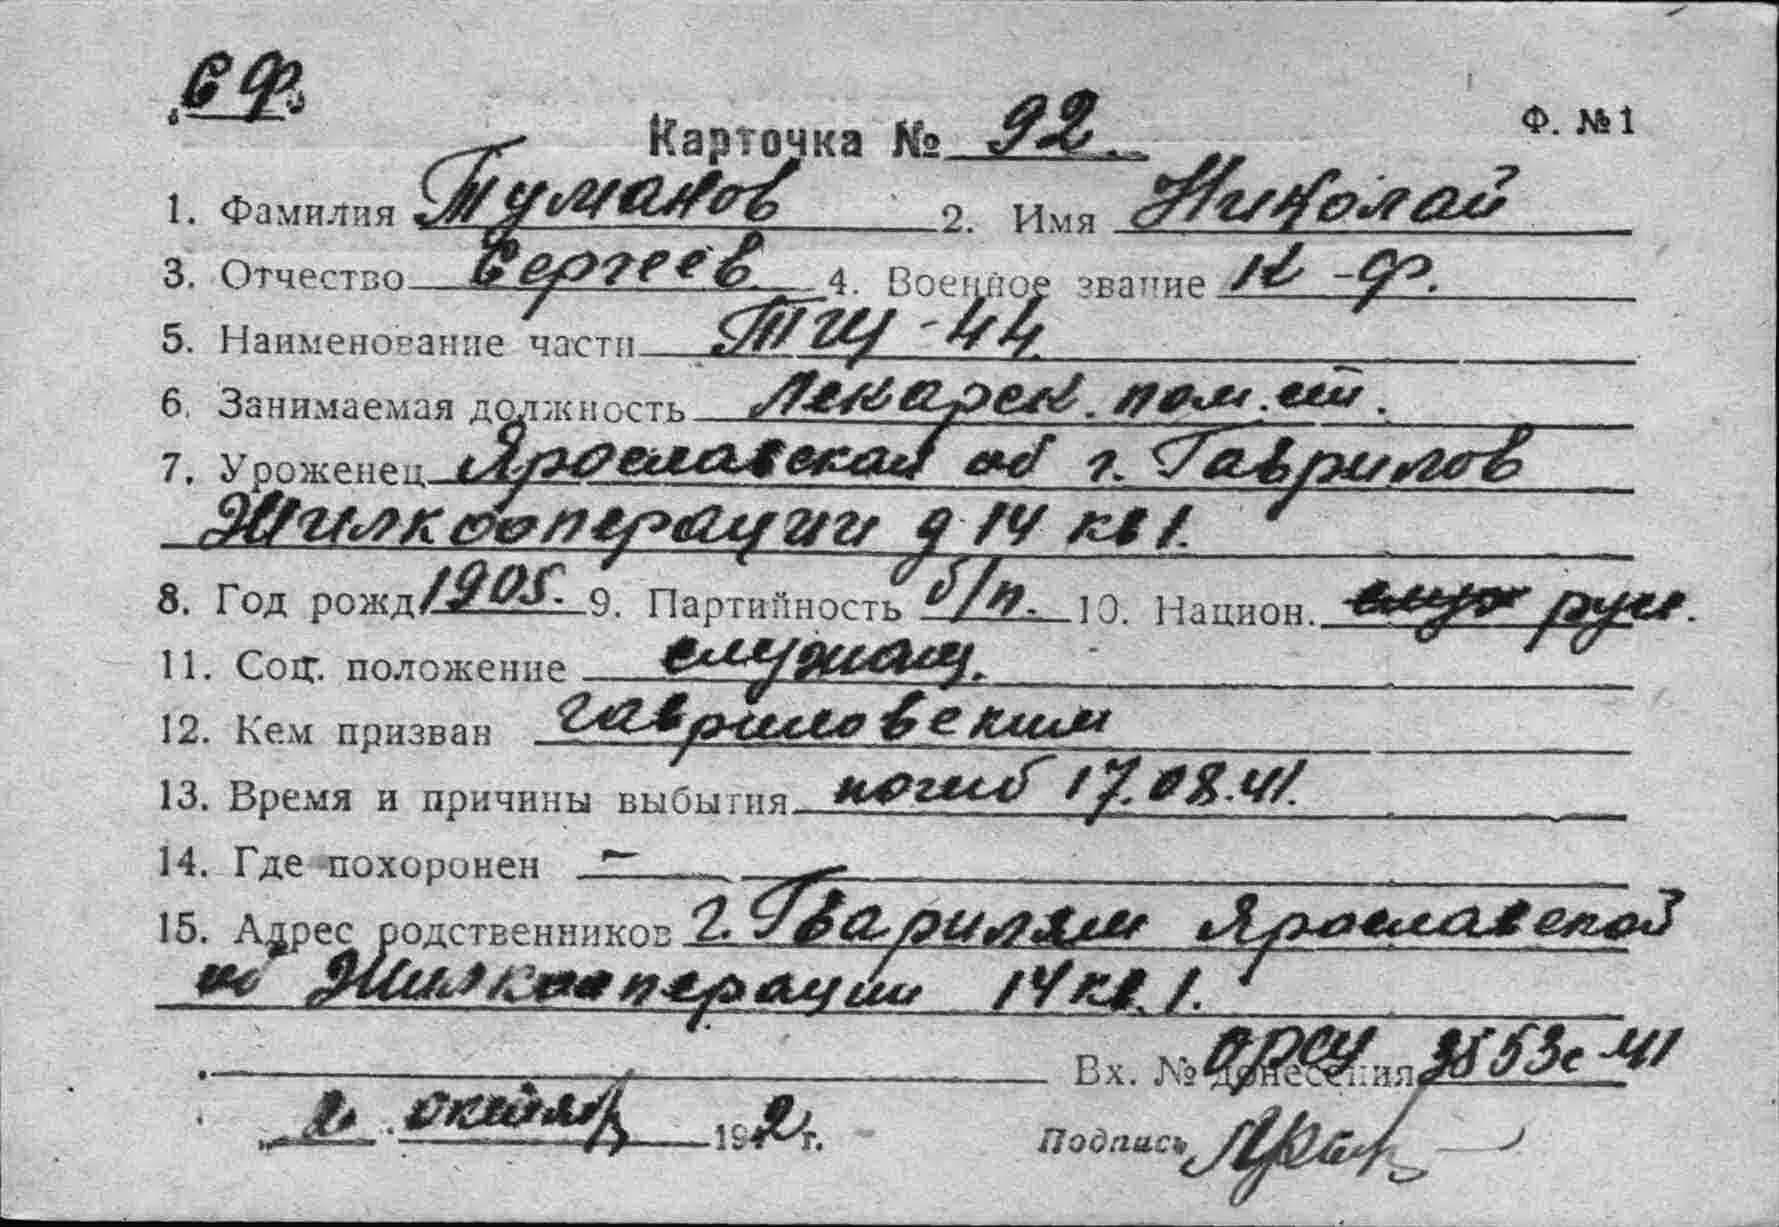 С Ф.
Карточка № 92. Ф. №1
1. Фамилия Туманов 2. Имя Николай
3. Отчество Сергеев. 4. Военное звание К-Ф.
5. Наименование части ТЩ-44
6. Занимаемая должность Лекарск. пом. ст.
7. Уроженец Ярославская об г. Гаврилов
Жилкооперации д 14 кв 1.
8. Год рожд 1905. 9. Партийность б/п. 10. Национ. служ русс.
11. Соц. положение служащ.
12. Кем призван Гавриловским
13. Время и причины выбытия погиб 17.08.41.
14. Где похоронен —
15. Адрес родственников г. Гварилям Ярославской
об Жилкооперации 14 кв. 1.
Вх. № донесения ОРСУ 3553с-41
2. октября 1942 г. Подпись